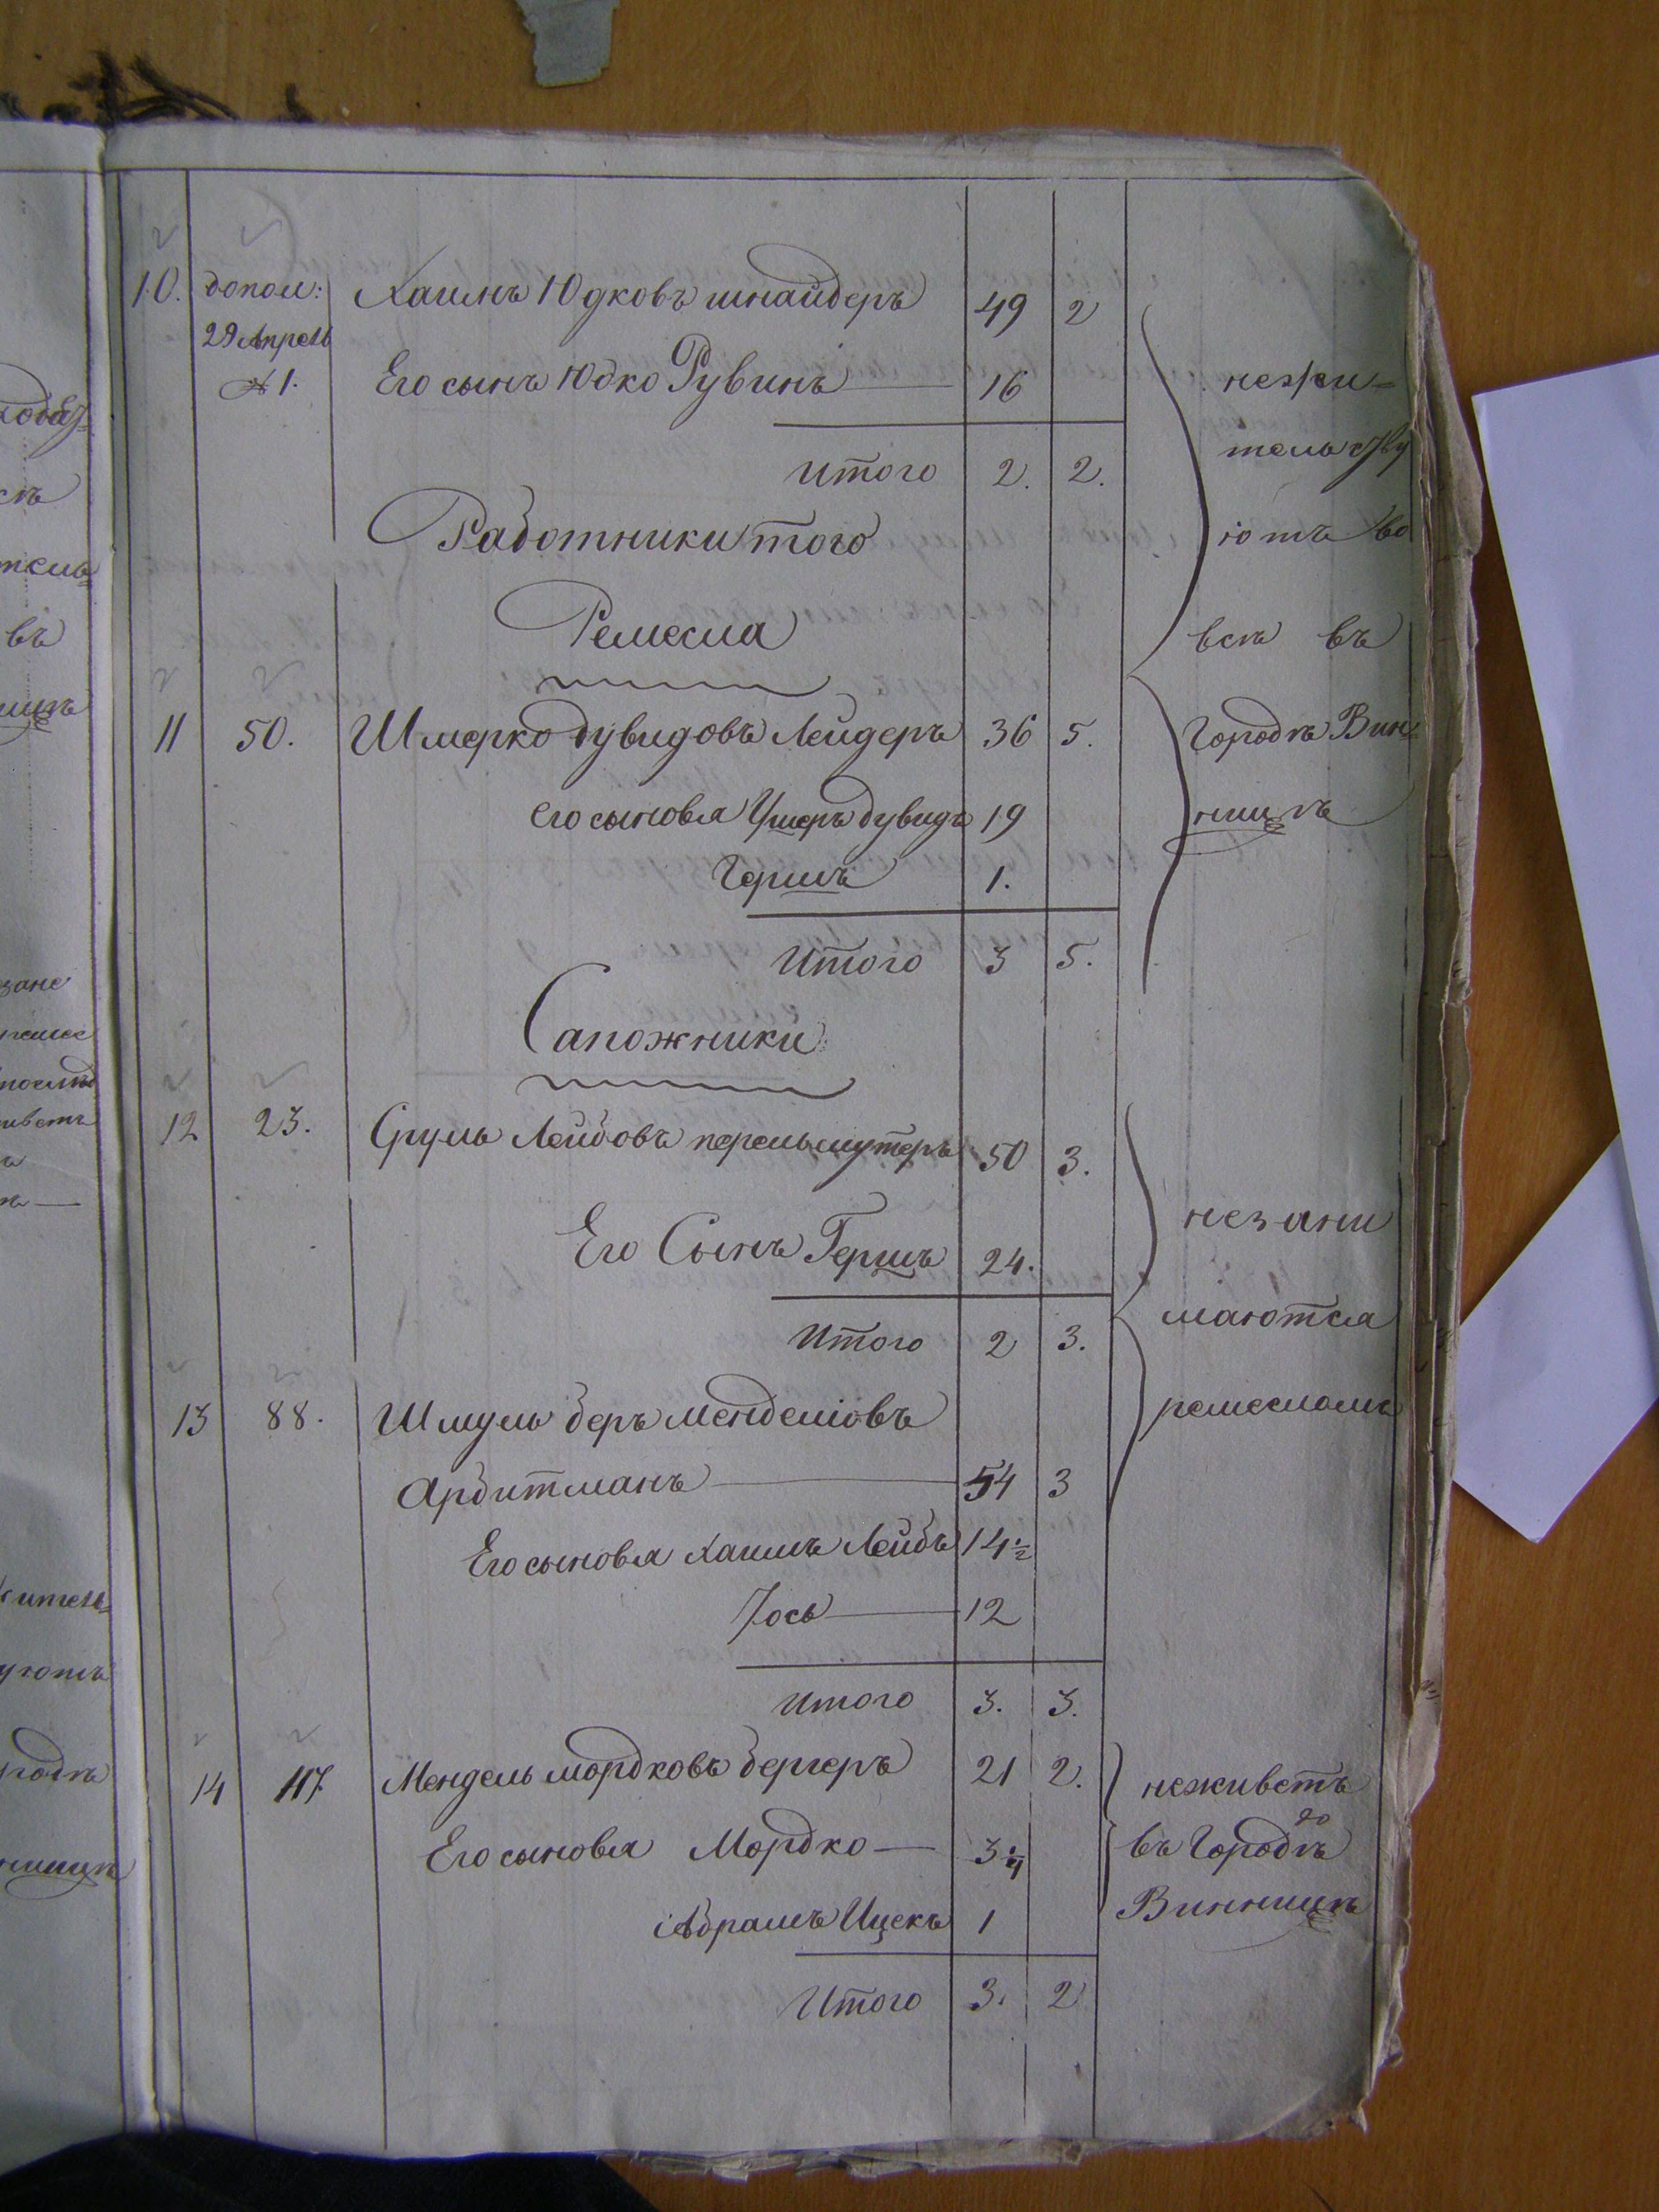 10. допол: Хаимъ Юдковъ шнайдеръ 49 2
29 Апреля
№ 1. Его сынъ Юдко Рувинъ 16
нежи=
тельству
Итого 2. 2.
Работники того
ютъ во
Ремесла
всѣ въ
11 50. Шмерко дувидовъ Лейдеръ 36 5.
Городѣ Вин=
его сыновья Ушеръ дувидъ 19
ницѣ
Гершъ 1.
Итого 3 5.
Сапожники
12 23. Сруль Лейбовъ перельмутеръ 50 3.
незани
Его Сынъ Гершъ 24.
маются
Итого 2 3.
ремесломъ
13 88. Шмуль беръ менделіовъ
Арбитманъ 54 3
Его сыновья хаимъ Лейбъ 14½
Іось 12
Итого 3. 3.
14 117. Мендель мордковъ бергеръ 21 2.
неживетъ
Его сыновья Мордко 3¼
въ Городѣ
Винницѣ
Абрамъ Ицекъ 1
Итого 3. 2